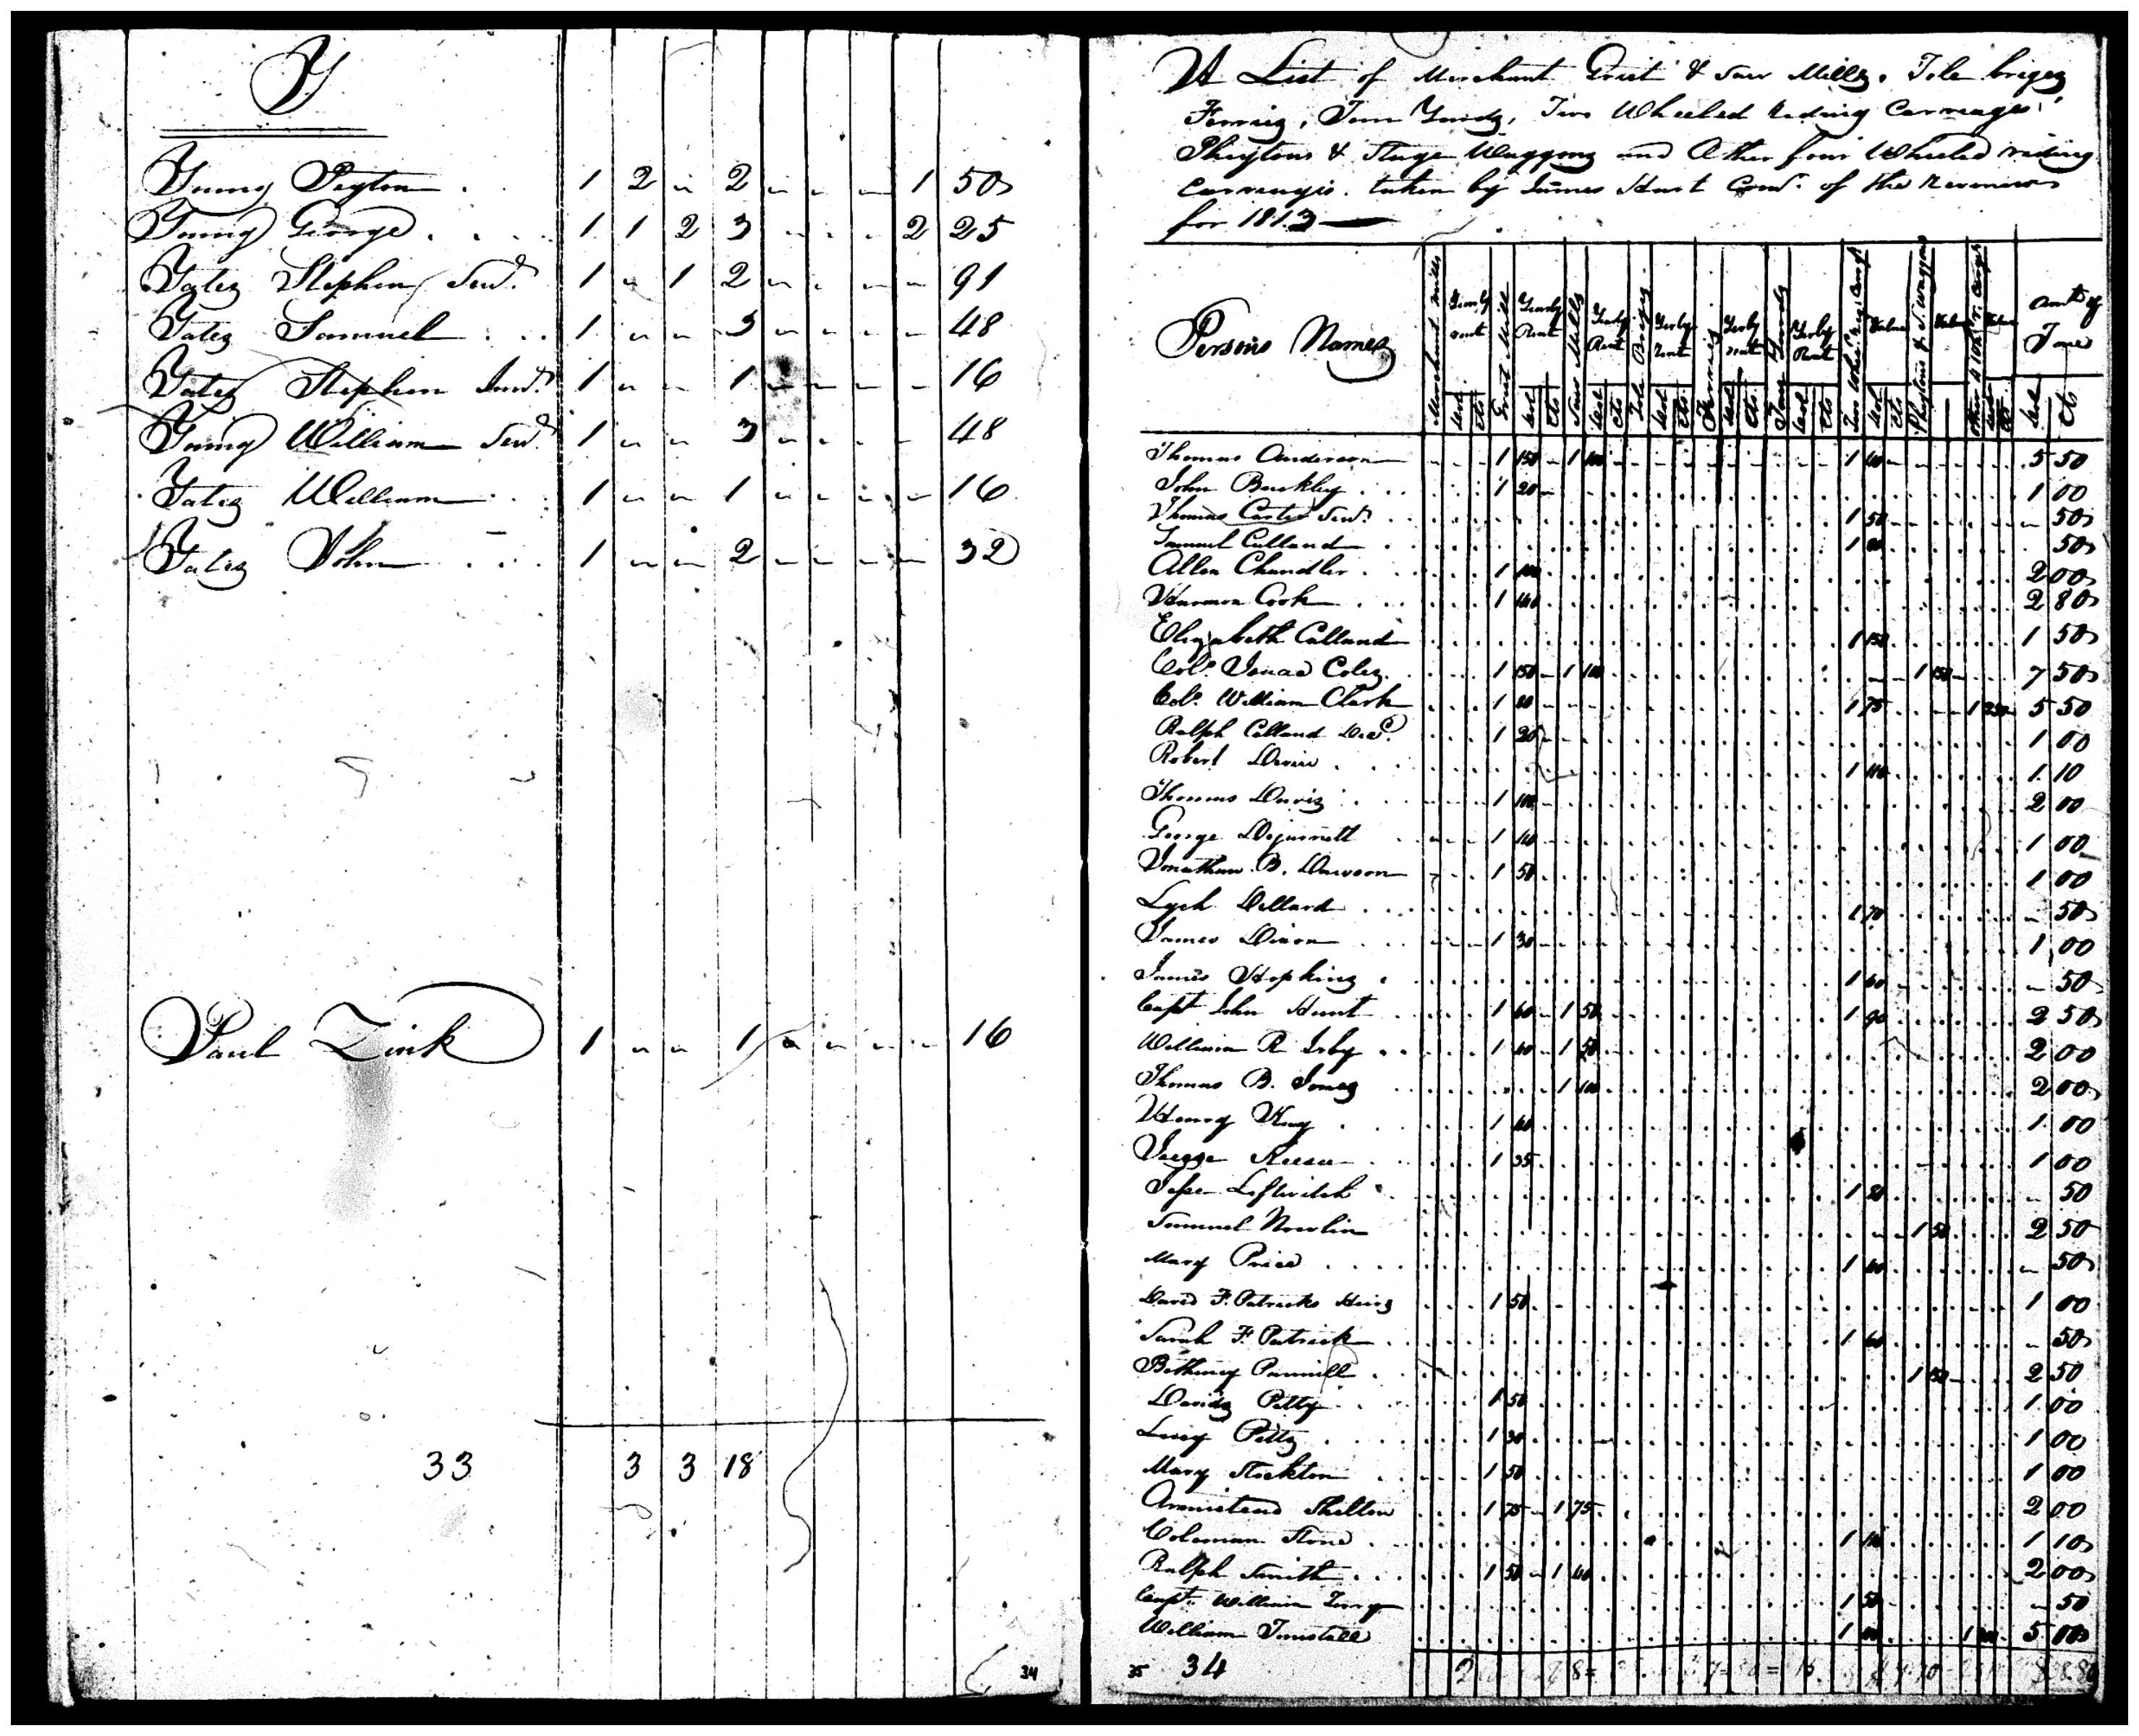 Y
Young Peyton . . 1 2 " 2 " " " 1 50
Young George . . . . 1 1 2 3 . . . 2 25
Yates Stephen Senr. 1 " 1 2 " " " " 91
Yates Samuel . . . 1 " " 3 " " " " 48
Yates Stephen Junr. 1 " " 1 " " " " 16
Young William Senr. 1 " " 3 " " " " 48
Yates William . . 1 " " 1 " " " " 16
Yates John . . . 1 " " 2 " " " " 32
Paul Zink 1 " " 1 " " " " 16
33 3 3 18
34
A List of Merchant Grist & Saw Mills, Tole briges
Ferries, Tan Yards, Two Wheeled riding Carriages,
Pheytons & Stage Waggons and Other four Wheeled riding
Carriages. taken by James Hart Comr. of the Revenue
for 1813
Persons Names Merchant Mills Yearly rent Grist Mill Yearly Rent Saw Mills Yearly Rent Tole Briges Yerly rent Ferries Yerly rent Tan Yards Yerly Rent Two Whel Rig Carrg Value Pheytons & S. Waggons Value Other 4 Whr. Carges Value Amt of Tax
Dol Cts Dol Cts Dol Cts Dol Cts Dol Cts Dol Cts Dol Cts Dol Cts Dol Ct
Thomas Anderson 1 150 1 100 1 60 5 50
John Buckley 1 20 1 00
Thomas Carter Senr. 1 50 50
Samuel Calland 1 50
Allen Chandler 1 100 2 00
Harmon Cook 1 140 2 80
Elizabeth Calland 1 150 1 50
Colo. Isaac Coles 1 150 1 100 1 150 7 50
Colo. William Clark 1 80 1 75 1 250 5 50
Ralph Calland Decd. 1 20 1 00
Robert Devin 1 110 1 10
Thomas Davis 1 100 2 00
George Dejarnett 1 40 1 00
Jonathan B. Dawson 1 50 1 00
Lynch Dillard 1 70 50
James Dixon 1 30 1 00
James Hopkins 1 60 50
Capt John Hunt 1 60 1 50 1 90 2 50
William R Irby 1 40 1 50 2 00
Thomas B. Jones 1 100 2 00
Henry Kay 1 40 1 00
Keesee 1 35 1 00
Jesse Leftwitch 1 20 50
Samuel Nowlin 1 50 2 50
Mary Price 1 60 50
David F. Patricks Heirs 1 50 1 00
Sarah F. Patrick 1 60 50
Betheney Pannill 1 150 2 50
Davis Pitty 1 50 1 00
Lucy Pitts 1 30 1 00
Mary Stockton 1 50 1 00
Armistead Shelton 1 75 1 75 2 00
Coleman Stone 1 110 1 10
Ralph Smith 1 50 1 40 2 00
Capt. William Terry 1 50 50
William Tunstall 1 1 5 00
35 34